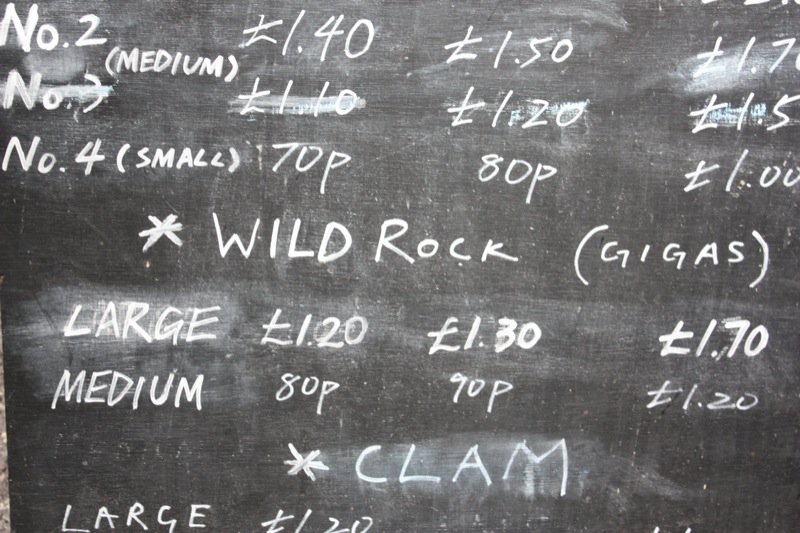 No.2 (MEDIUM) £1.40 £1.50 £1.70
No.3 £1.10 £1.20 £1.5
No.4 (SMALL) 70p 80p £1.00
* WILD ROCK (GIGAS)
LARGE £1.20 £1.30 £1.70
MEDIUM 80p 90p £1.20
* CLAM
LARGE £1.20